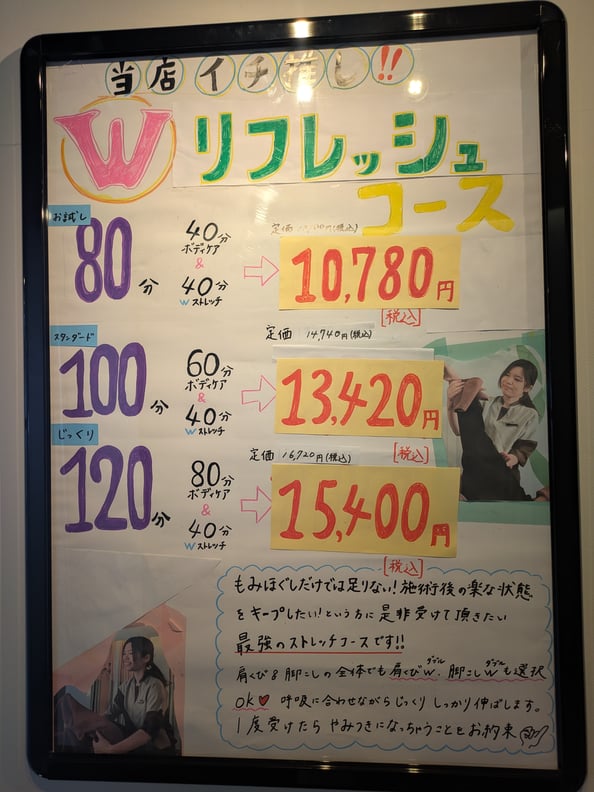 当店イチ推し!!
W リフレッシュ
コース
お試し
80分
40分
ボディケア
&
40分
Wストレッチ
定価
(税込)
10,780円
[税込]
スタンダード
100分
60分
ボディケア
&
40分
Wストレッチ
定価 14,740円(税込)
13,420円
[税込]
じっくり
120分
80分
ボディケア
&
40分
Wストレッチ
定価 16,720円(税込)
15,400円
[税込]
もみほぐしだけでは足りない!施術後の楽な状態
をキープしたい!という方に是非受けて頂きたい
最強のストレッチコースです!!
肩くび&脚こしの全体でも肩くびWダブル、脚こしWダブルも選択
OK♥ 呼吸に合わせながらじっくりしっかり伸ばします。
1度受けたら やみつきになっちゃうことをお約束